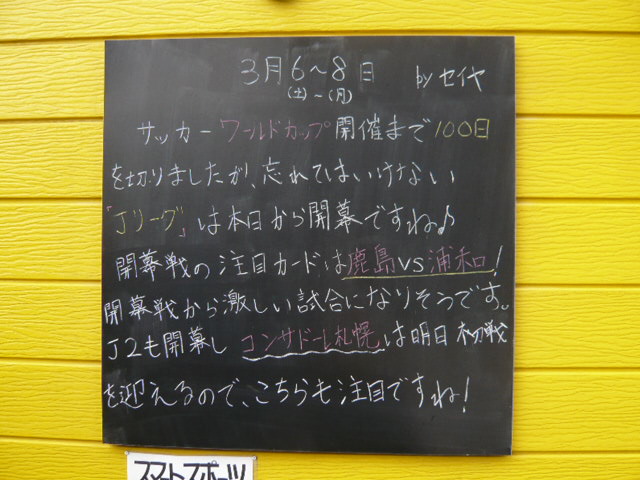 3月6～8日 by セイヤ
(土)～(月)
サッカーワールドカップ開催まで100日
を切りましたが、忘れてはいけない
「Jリーグ」は本日から開幕ですね♪
開幕戦の注目カードは鹿島vs浦和!
開幕戦から激しい試合になりそうです。
J2も開幕し コンサドーレ札幌は明日初戦
を迎えるので、こちらも注目ですね!
スマートスポーツ